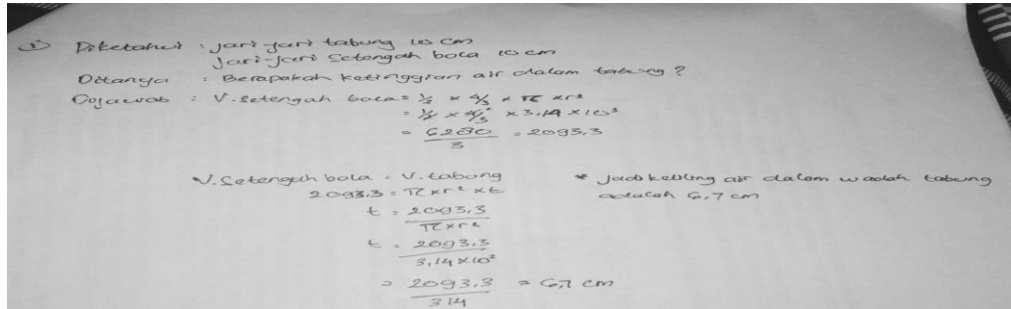 ① Diketahui : jari-jari tabung 10 cm
Jari-jari setengah bola 10 cm
Ditanya : Berapakah ketinggian air dalam tabung ?
Dijawab : V. Setengah bola = 1/2 × 4/3 × π × r³
= 1/2 × 4/3 × 3,14 × 10³
= 6280/3 = 2093,3
V. Setengah bola = V. tabung
2093,3 = π × r² × t
t = 2093,3 / π × r²
t = 2093,3 / 3,14 × 10²
= 2093,3 / 314 = 6,7 cm
* Jadi keliling air dalam wadah tabung
adalah 6,7 cm